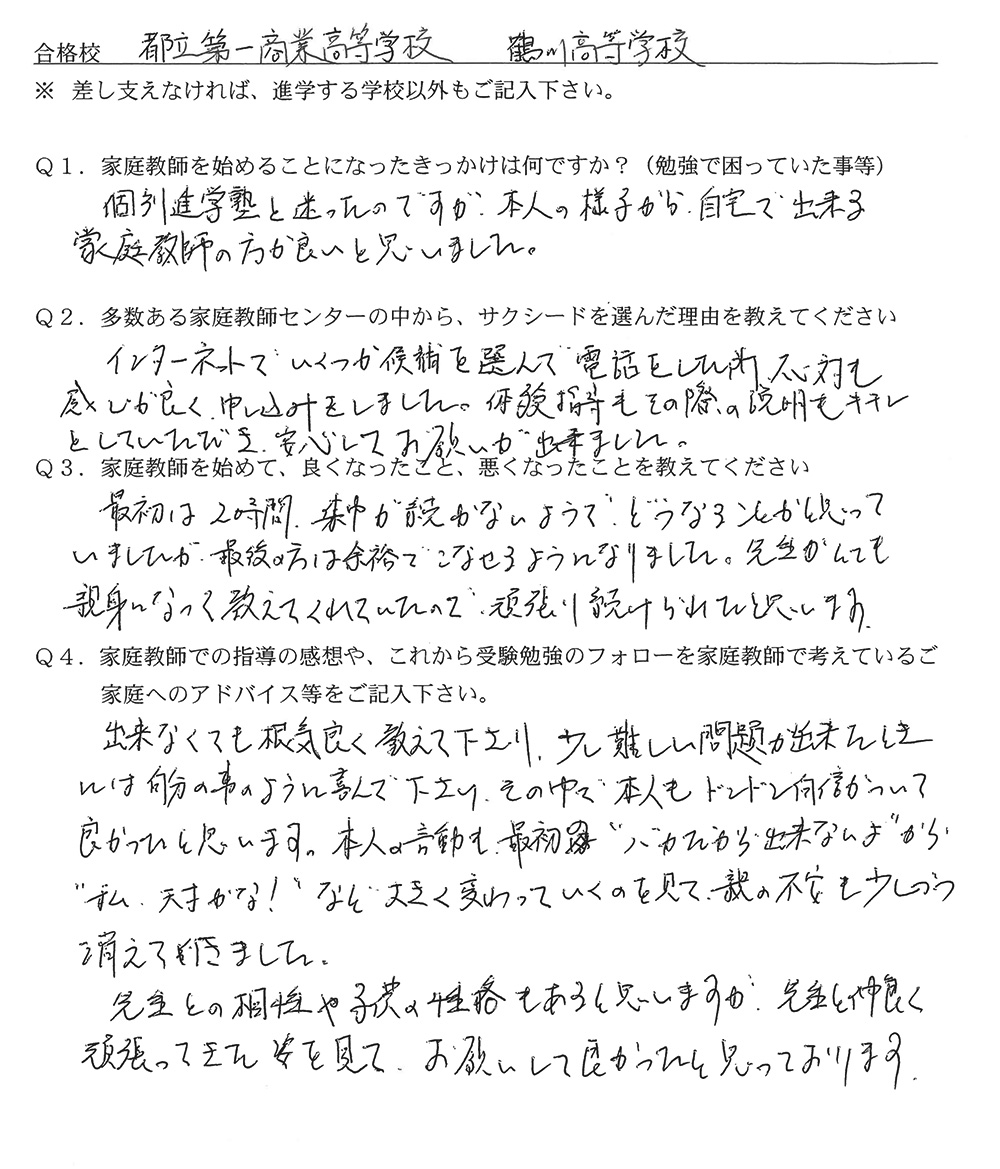 合格校 都立第一商業高等学校 鶴川高等学校
※ 差し支えなければ、進学する学校以外もご記入下さい。
Q1．家庭教師を始めることになったきっかけは何ですか？（勉強で困っていた事等）
個別進学塾と迷ったのですが、本人の様子から、自宅で出来る
家庭教師の方が良いと思いました。
Q2．多数ある家庭教師センターの中から、サクシードを選んだ理由を教えてください
インターネットでいくつか候補を選んで電話をした所、応対も
感じが良く、申し込みをしました。体験指導もその際の説明もキチン
としていただき、安心してお願いが出来ました。
Q3．家庭教師を始めて、良くなったこと、悪くなったことを教えてください
最初は2時間、集中が続かないようで、どうなることかと思って
いましたが、最後の方は余裕でこなせるようになりました。先生がとても
親身になって教えてくれていたので、頑張り続けられたと思います。
Q4．家庭教師での指導の感想や、これから受験勉強のフォローを家庭教師で考えているご
家庭へのアドバイス等をご記入下さい。
出来なくても根気良く教えて下さり、少し難しい問題が出来たとき
には自分の事のように喜んで下さり、その中で本人もドンドン自信がついて
良かったと思います。本人の言動も、最初の“バカだから出来ないよ”から
“私、天才かな！”など大きく変わっていくのを見て、親の不安も少しづつ
消えて行きました。
先生との相性や子供の性格もあると思いますが、先生と仲良く
頑張ってきた姿を見て、お願いして良かったと思っております。